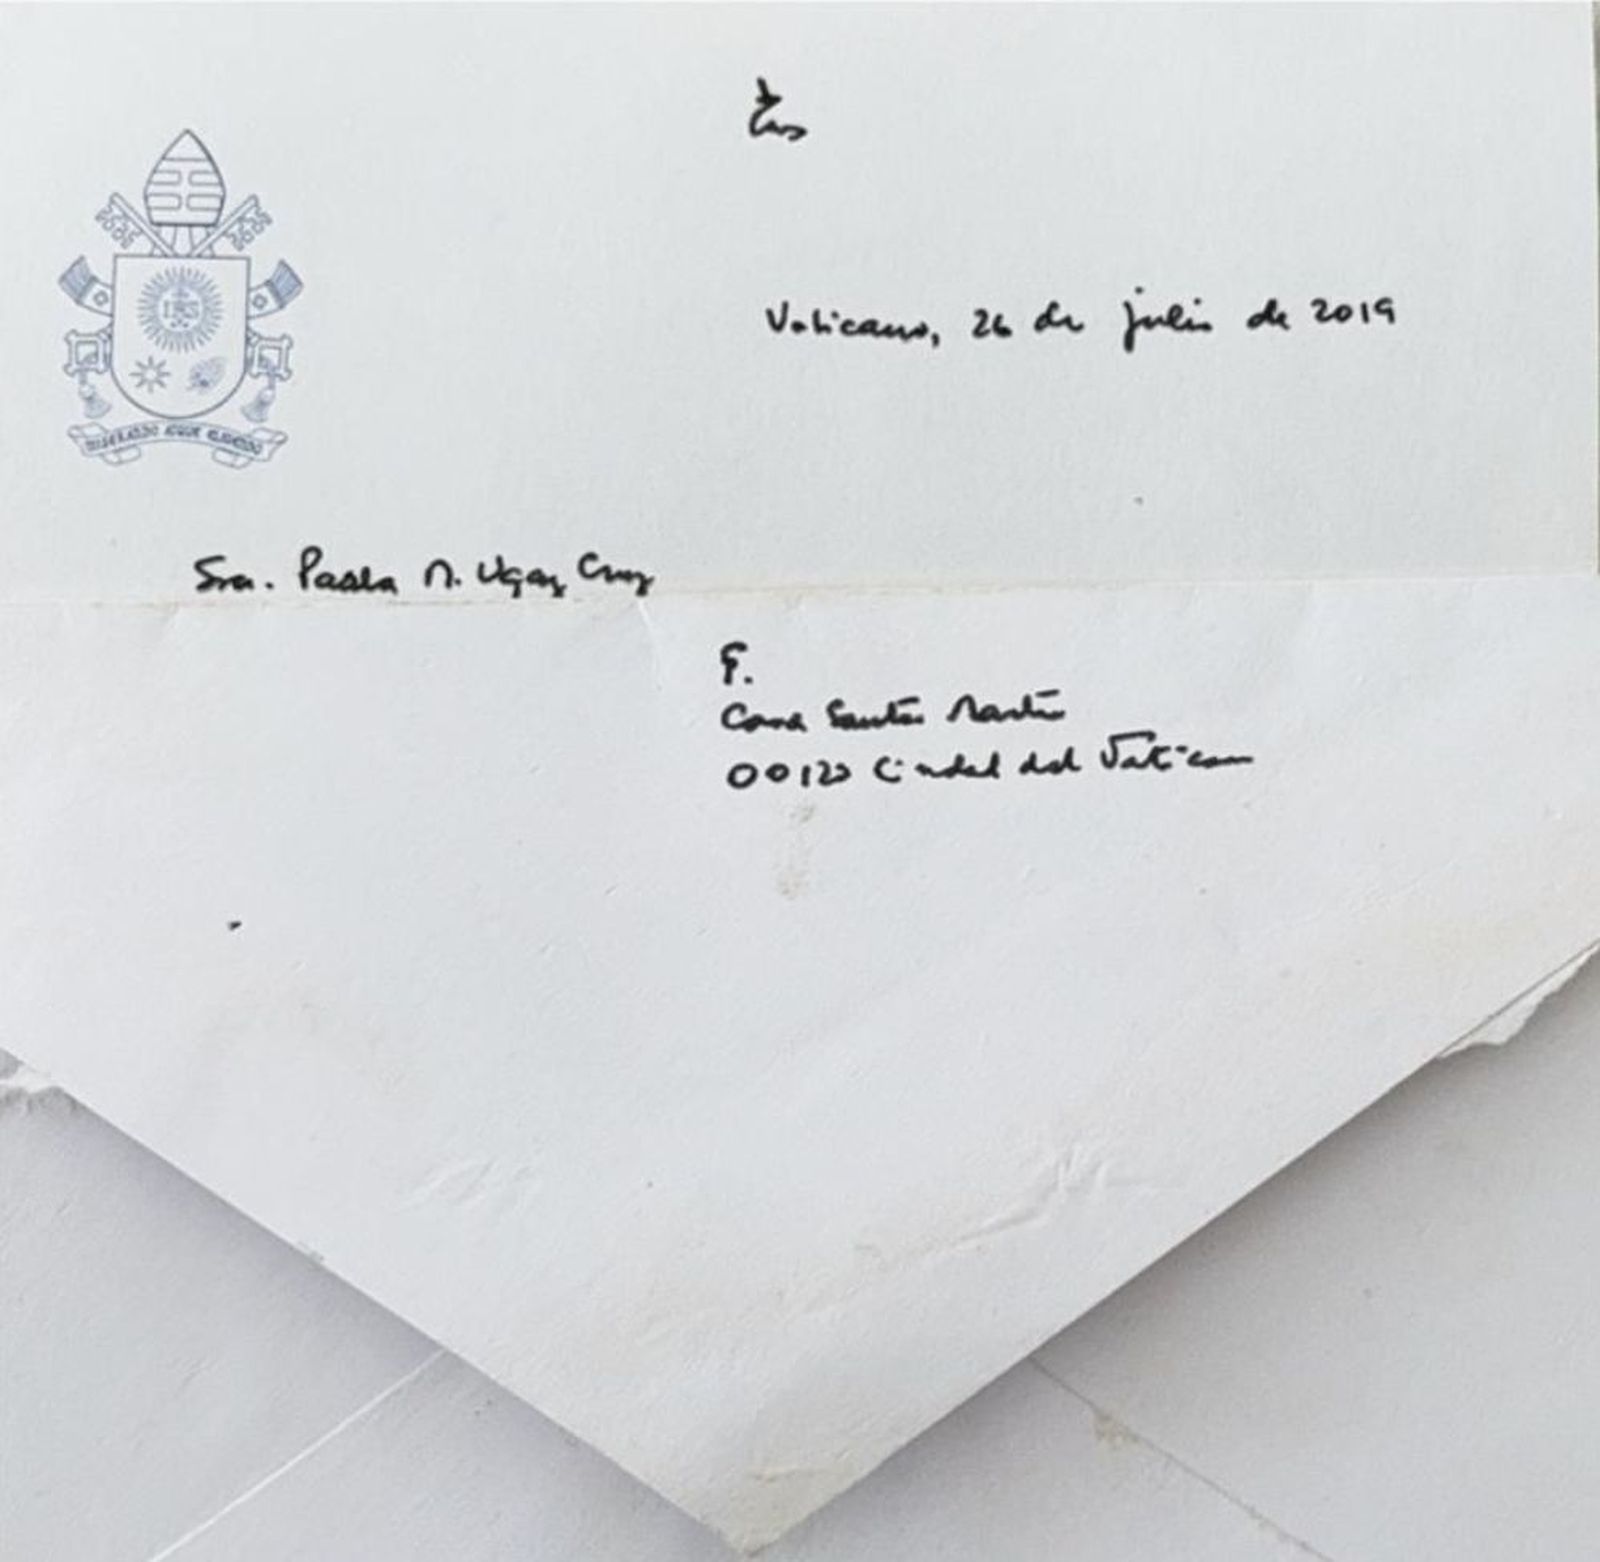 IHS
Vaticano, 26 de julio de 2019
MISERANDO ATQUE ELIGENDO
Sra. Paola M. Ugaz Cruz
F.
Casa Santa Marta
00120 Ciudad del Vaticano